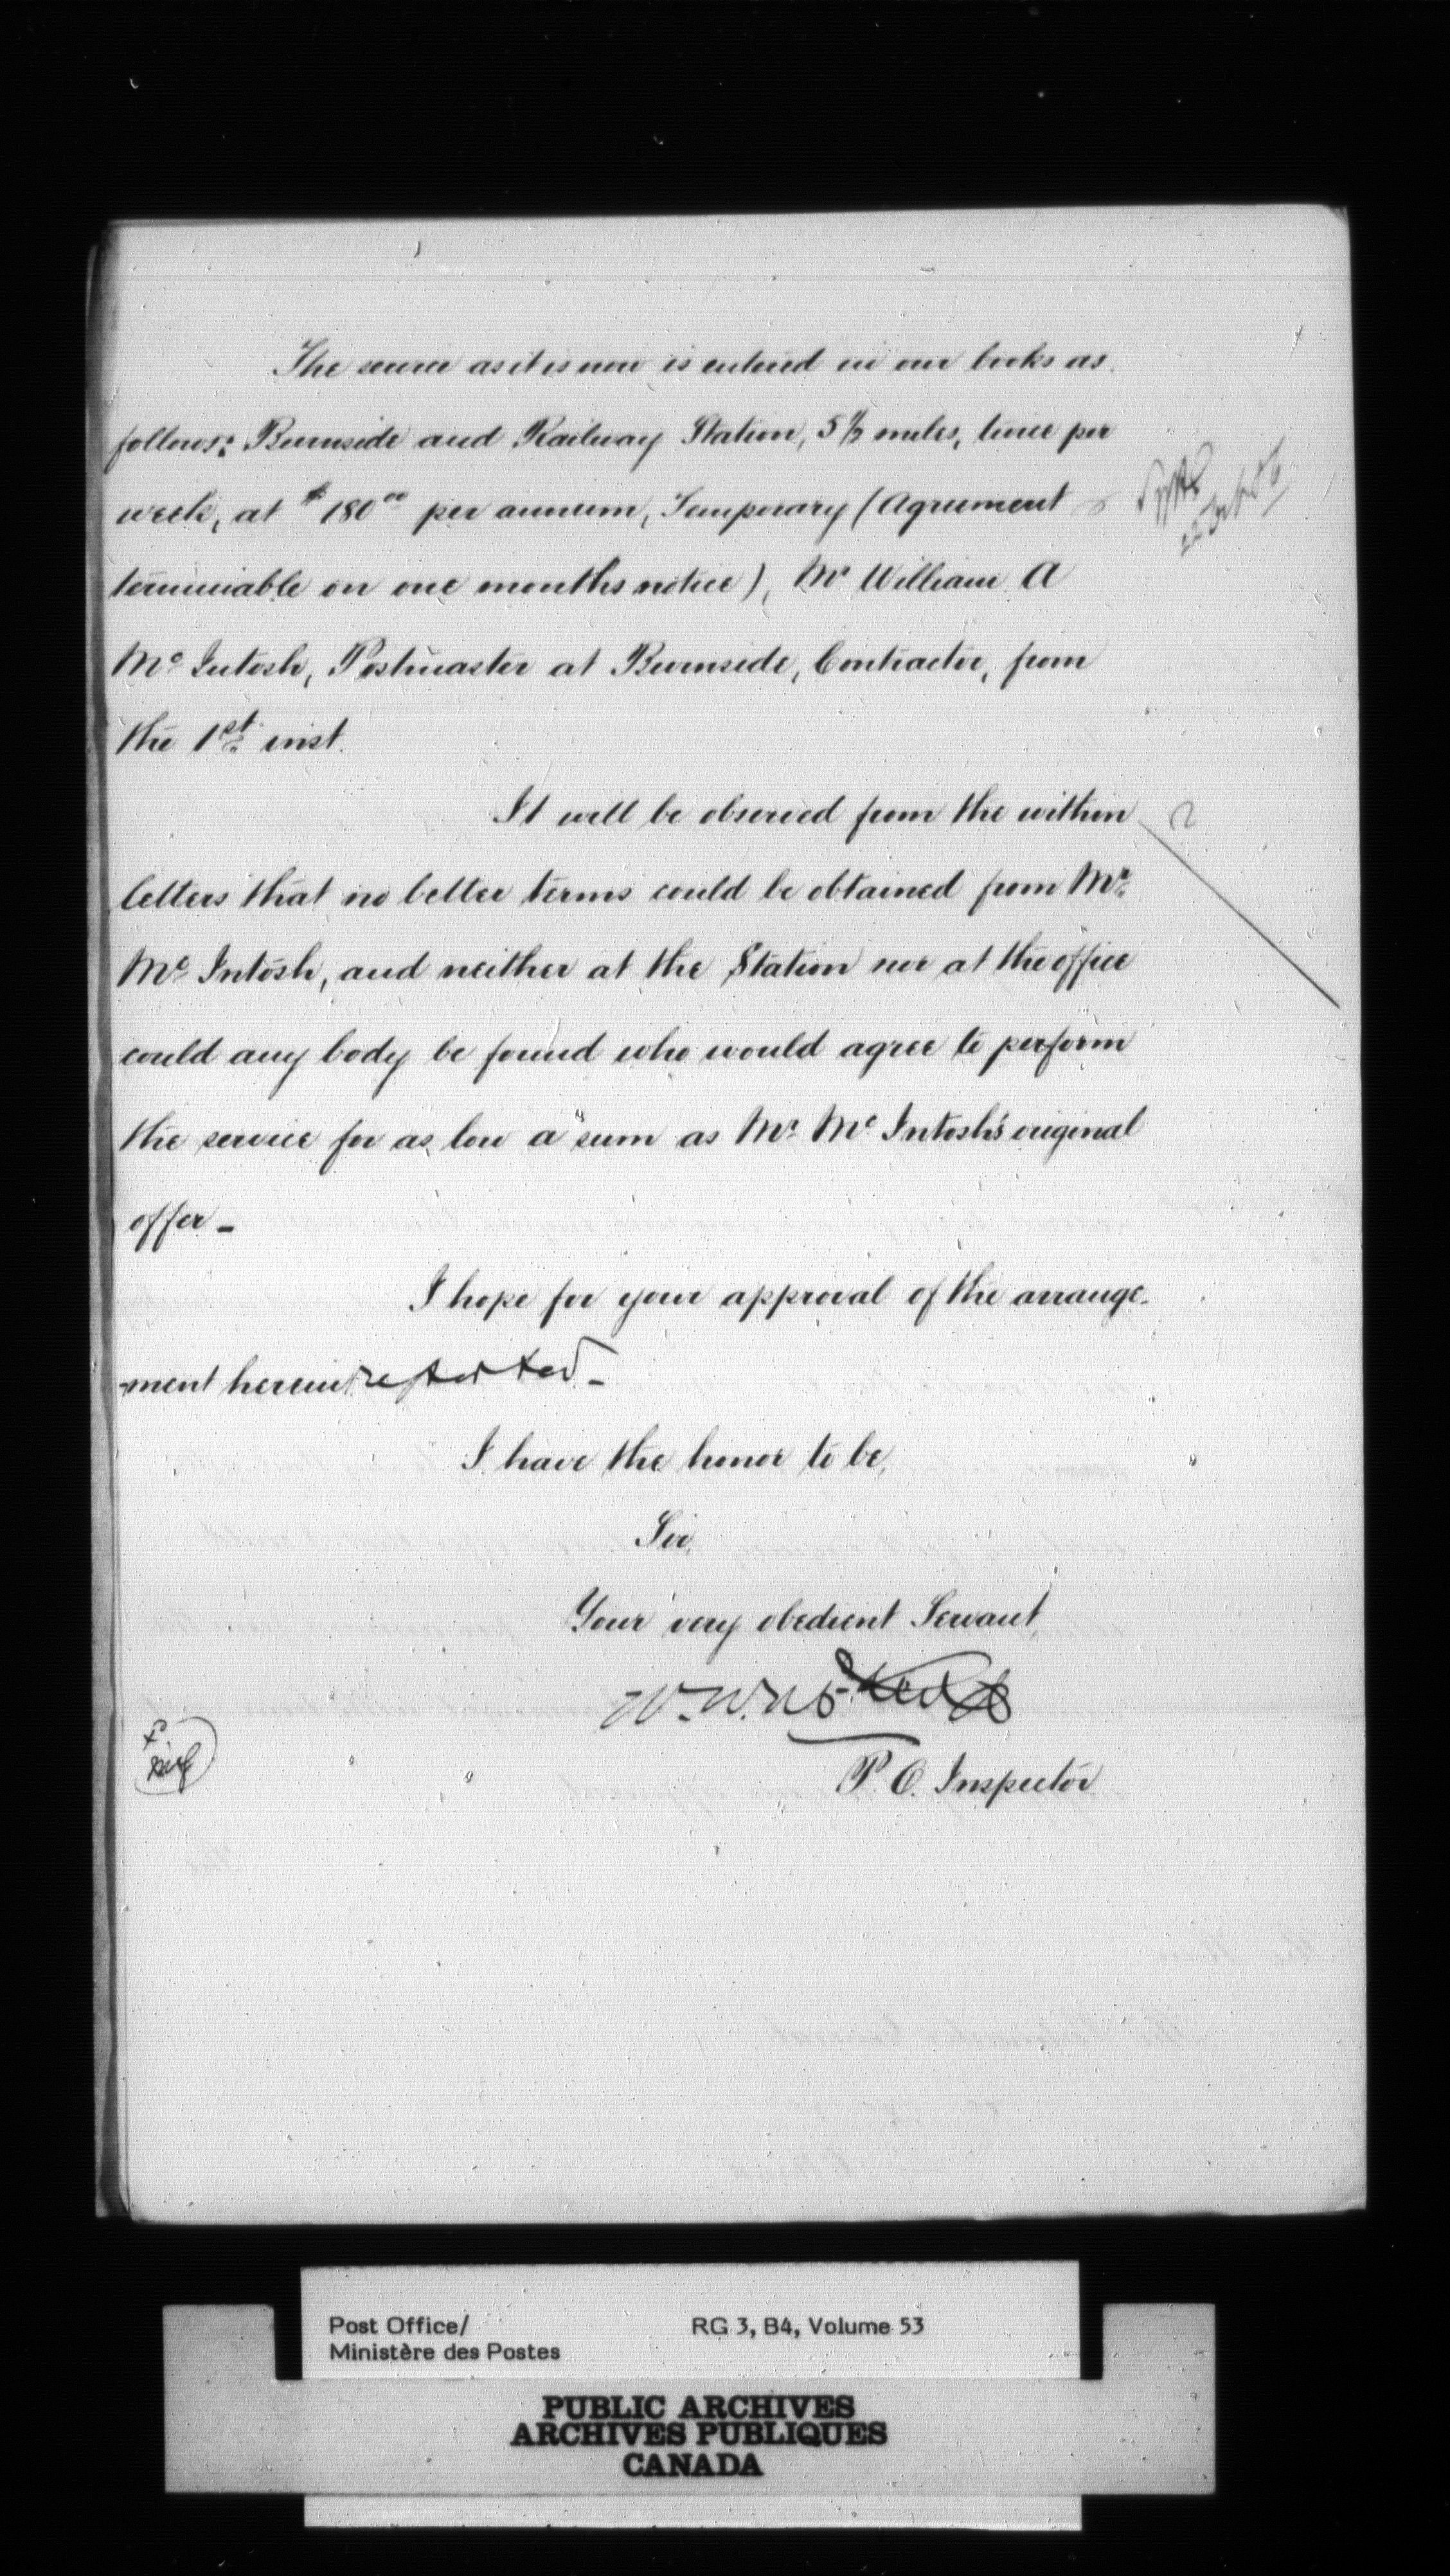 The service as it is now is entered in our books as
follows: Burnside and Railway Station, 5 1/2 miles, twice per
week, at $180⁰⁰ per annum, Temporary (Agreement
terminable on one months notice), Mr William A
Mc Intosh, Postmaster at Burnside, Contractor, from
the 1st inst.
It will be observed from the within
letters that no better terms could be obtained from Mr.
Mc Intosh, and neither at the Station nor at the office
could any body be found who would agree to perform
the service for as low a sum as Mr. Mc Intosh's original
offer -
I hope for your approval of the arrange-
-ment herein reported -
I have the honor to be,
Sir,
Your very obedient Servant,
P. O. Inspector
Post Office/
Ministère des Postes
RG 3, B4, Volume 53
PUBLIC ARCHIVES
ARCHIVES PUBLIQUES
CANADA